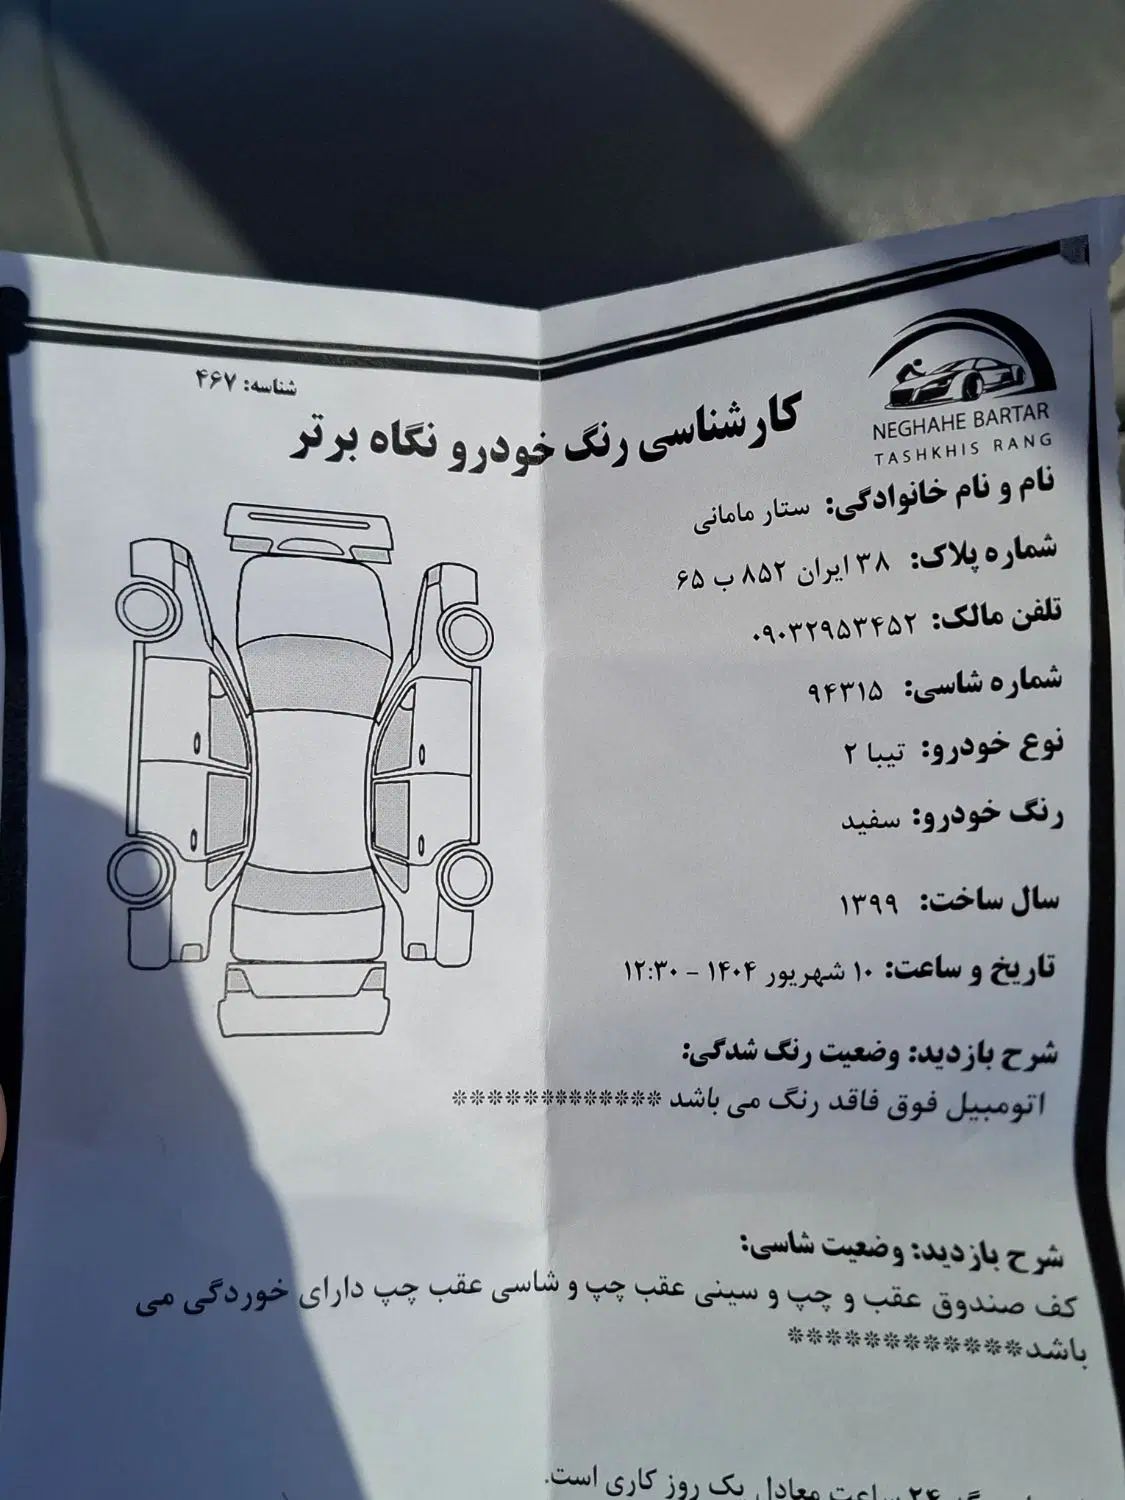 شناسه: ۴۶۷
NEGHAHE BARTAR
TASHKHIS RANG
کارشناسی رنگ خودرو نگاه برتر
نام و نام خانوادگی: ستار مامانی
شماره پلاک: ۳۸ ایران ۸۵۲ ب ۶۵
تلفن مالک: ۰۹۰۳۲۹۵۳۴۵۲
شماره شاسی: ۹۴۳۱۵
نوع خودرو: تیبا ۲
رنگ خودرو: سفید
سال ساخت: ۱۳۹۹
تاریخ و ساعت: ۱۰ شهریور ۱۴۰۴ - ۱۲:۳۰
شرح بازدید: وضعیت رنگ شدگی:
اتومبیل فوق فاقد رنگ می باشد *************
شرح بازدید: وضعیت شاسی:
کف صندوق عقب و چپ و سینی عقب چپ و شاسی عقب چپ دارای خوردگی می
باشد*************
۲۴ ساعت معادل یک روز کاری است.